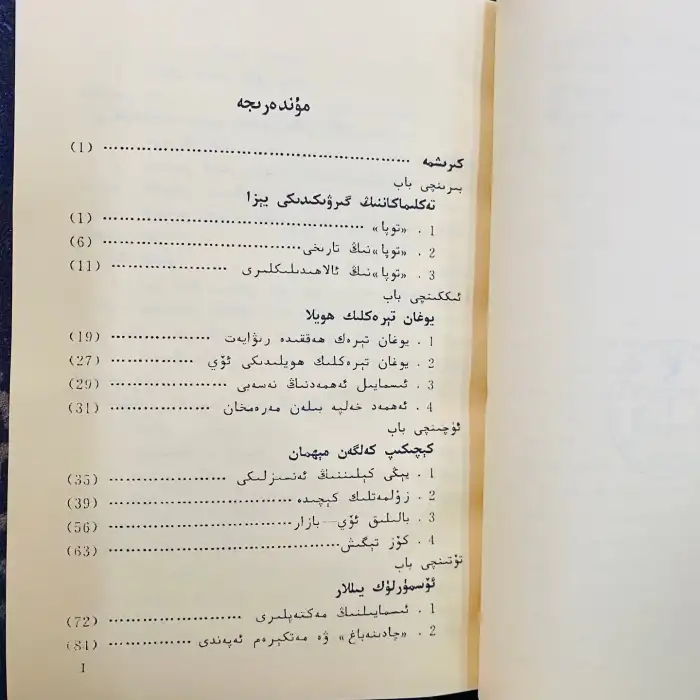 مۇندەرىجە
كىرىشمە ........................ (1)
بىرىنچى باب
تەكلىماكاننىڭ گىرۋىكىدىكى يېزا
1 . «توپا» ........................ (1)
2 . «توپا»نىڭ تارىخى ........................ (6)
3 . «توپا»نىڭ ئالاھىدىلىكلىرى ........................ (11)
ئىككىنچى باب
يوغان تېرەكلىك ھويلا
1 . يوغان تېرەك ھەققىدە رىۋايەت ........................ (19)
2 . يوغان تېرەكلىك ھويلىدىكى ئۆي ........................ (27)
3 . ئىسمايىل ئەھمەدنىڭ نەسەبى ........................ (29)
4 . ئەھمەد خەلپە بىلەن مەرەمخان ........................ (31)
ئۈچىنچى باب
كېچىكىپ كەلگەن مېھمان
1 . يېڭى كېلىننىڭ ئەنسىزلىكى ........................ (35)
2 . زۇلمەتلىك كېچىدە ........................ (39)
3 . بالىلىق ئۆي—بازار ........................ (56)
4 . كۆز تېگىش ........................ (63)
تۆتىنچى باب
ئۆسمۈرلۈك يىللار
1 . ئىسمايىلنىڭ مەكتەپلىرى ........................ (72)
2 . «چادىنەباغ» ۋە مەتكېرەم ئەپەندى ........................ (84)
I